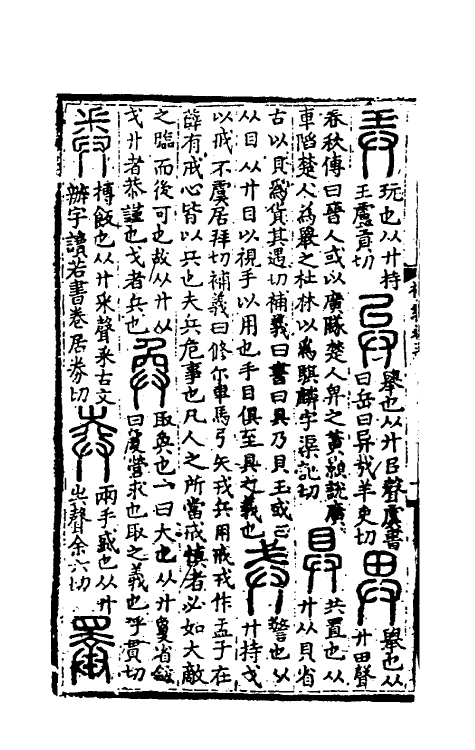 弄 玩也从廾持
王盧貢切
异 舉也从廾㠯聲虞書
曰岳曰异哉羊吏切
畁 舉也从
廾田聲
春秋傳曰晉人或以廣隊楚人畁之黃顥說廣
車陷楚人為舉之杜林以為騏麟字渠記切
具 共置也从
廾从貝省
古以貝為貨其遇切補義曰書曰具乃貝玉或云
从目从廾目以視手以用也手目俱至具之義也
戒 警也从
廾持戈
以戒不虞居拜切補義曰修尔車馬弓矢戎兵用戒戎作孟子在
薛有戒心皆以兵也夫兵危事也凡人之所當戒慎者必如大敵
之臨而後可也故从廾从
戈廾者恭謹也戈者兵也
奐 取奐也一曰大也从廾夐省鉉
曰夐營求也取之義也呼貫切
𢍏 摶飯也从廾釆聲釆古文
辦字讀若書卷居券切
兩手盛也从廾
聲余六切